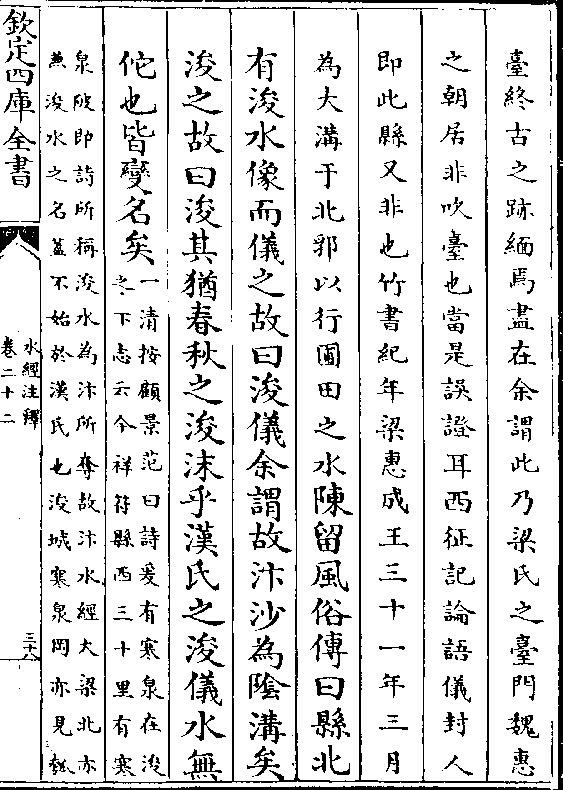 臺終古之跡緬焉盡在余謂此乃梁氏之臺門魏惠
之朝居非吹臺也當是誤證耳西征記論語儀封人
即此縣又非也竹書紀年梁惠成王三十一年三月
為大溝于北郛以行圃田之水陳留風俗傳曰縣北
有浚水像而儀之故曰浚儀余謂故汴沙為陰溝矣
浚之故曰浚其猶春秋之浚洙乎漢氏之浚儀水無
佗也皆變名矣
一清按顧景范曰詩爰有寒泉在浚
之下志云今祥符縣西三十里有寒
泉陂即詩所稱浚水為汴所奪故汴水經大梁北亦
兼浚水之名葢不始於漢氏也浚城寒泉岡亦見瓠
欽定四庫全書
水經注釋
卷二十二
三十八